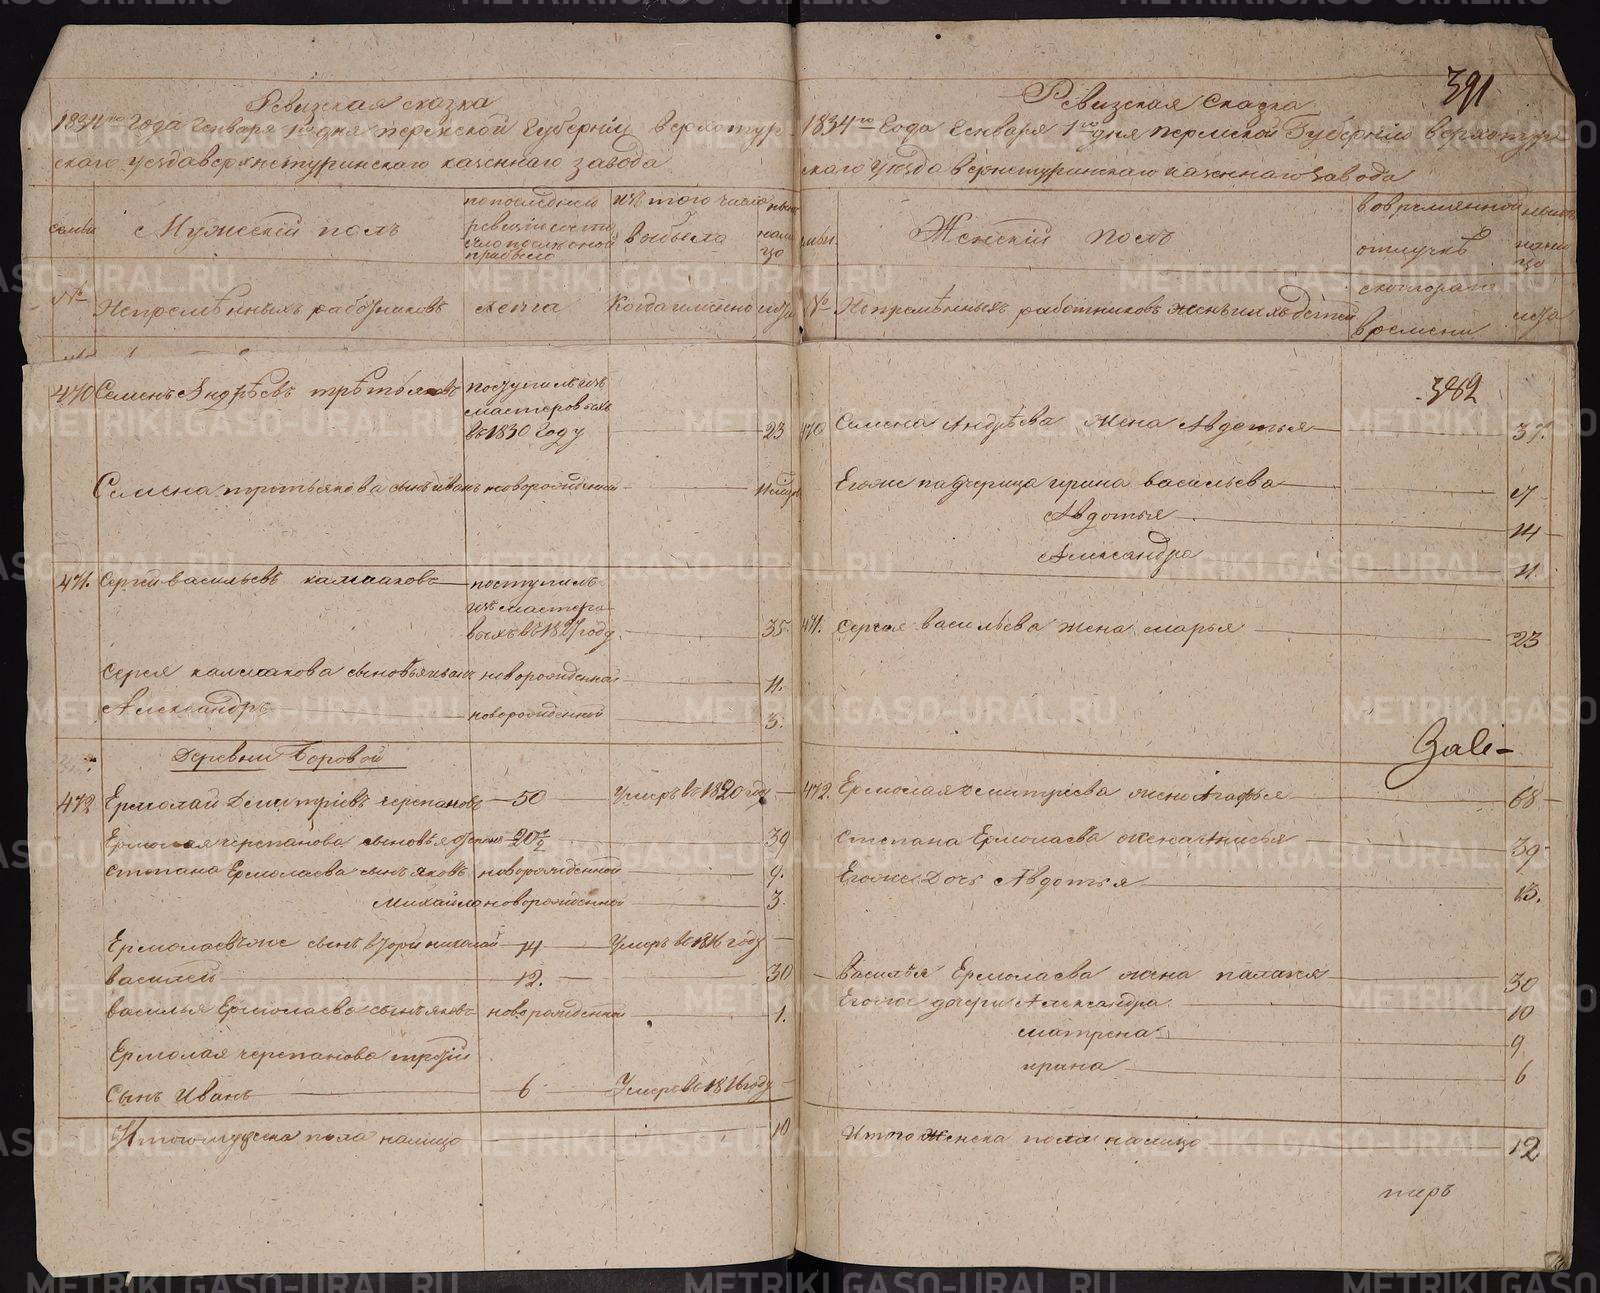 Ревизская сказка
1834го Года Генваря 1го дня пермской Губернiи верхотур-
скаго уезда верхнетуринскаго казеннаго завода
семьи
Мужескiй полъ
по последней ревизiи состояло
прибыло
изъ того числа выбыло
ныне на лицо
№
Непремѣнныхъ работниковъ
лета
Когда имянно
лета
470 Семенъ Андрѣевъ трѣтьяковъ поступилъ изъ мастеровыхъ въ 1830 Году 23
Семена третьякова сынъ иванъ новорожденной
471. Сергей васильевъ калмаковъ поступилъ изъ мастеровыхъ въ 1827 году 35
Сергея калмакова сыновья иванъ новорожденной 11.
Александръ новорожденной 3.
Деревни Боровой
472 Ермолай Дмитрiевъ черепановъ 50 Умеръ въ 1820 году
Ермолая черепанова сыновья 20 1/2 39
Степана Ермолаева сынъ яковъ новорожденной 9.
Михайло новорожденной 3
Ермолаевъ же сынъ вторый николай 14 Умеръ въ 1816 году
василей 12. 30
василья Ермолаева сынъ яковъ новорожденной 1.
Ермолая черепанова третiй
сынъ Иванъ 6 Умеръ въ 1816 году
Итого мужеска пола налицо 10
391
Ревизская Сказка
1834го Года Генваря 1го дня пермской Губернiи верхотур-
скаго Уезда верхнетуринскаго казеннаго завода
семьи
Женскiй полъ
во временной отлучкѣ
ныне налицо
№
Непремѣнныхъ работниковъ жены и ихъ детей
с котораго времени
лета
382
470 Семена Андрѣева жена Авдотья 37.
Егоже падчерица ирина васильева 17
Авдотья 14
Александра 11.
471. Сергея васильева жена марья 23
472. Ермолая дмитрiева жена Агафья 68
Степана Ермолаева жена 39
Егоже Дочь Авдотья 13.
василья Ермолаева жена палагея 30
Егоже дочери Александра 10
матрена 9
ирина 6
Итого женска пола налицо 12